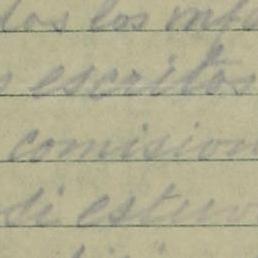 dos los inf
s escritos
comision
di estuv